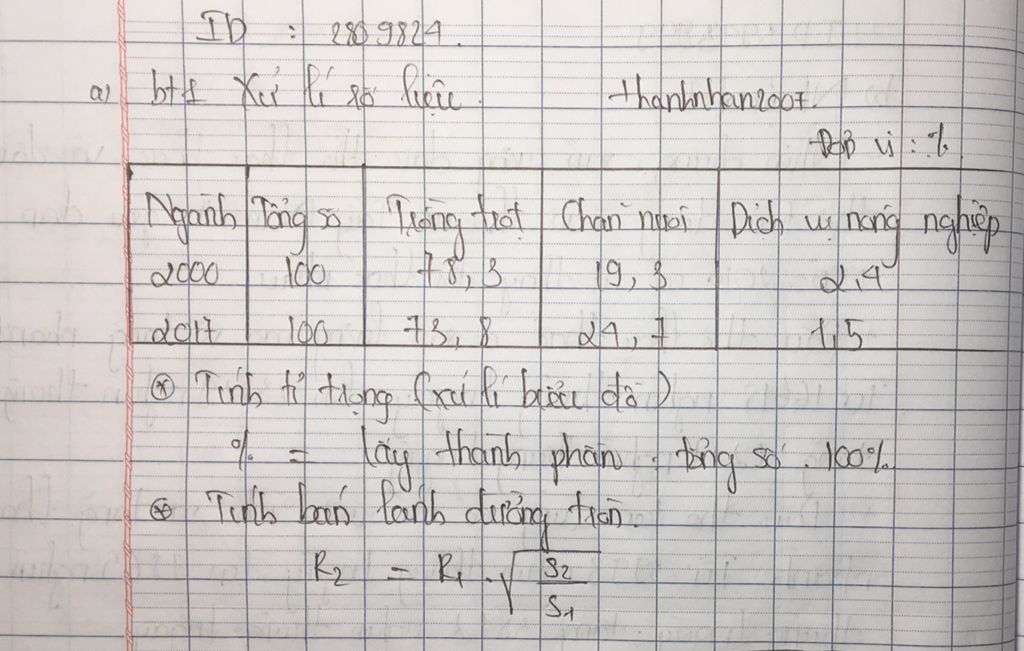 ID : 2809824.
a) bt1 Xử lí số liệu. thanhnhan2007.
vị : %
Ngành Tổng số Trồng trọt Chăn nuôi Dịch vụ nông nghiệp
2000 100 78,3 19,3 2,4
2017 100 73,8 24,7 1,5
* Tính tỉ trọng (xử lí biểu đồ)
% = lấy thành phần : tổng số . 100%
* Tính bán kính đường tròn.
R2 = R1 . √ S2 / S1